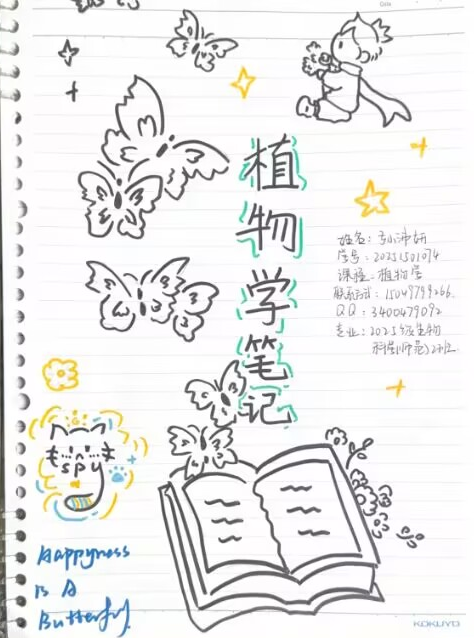 植物学笔记
姓名：孙沛妍
学号：20251501074
课程：植物学
联系方式：15049799266
QQ：3400479092
专业：2025级生物
科学(师范)2班
spy
Happyness
is A
Butterfly
KOKUYO